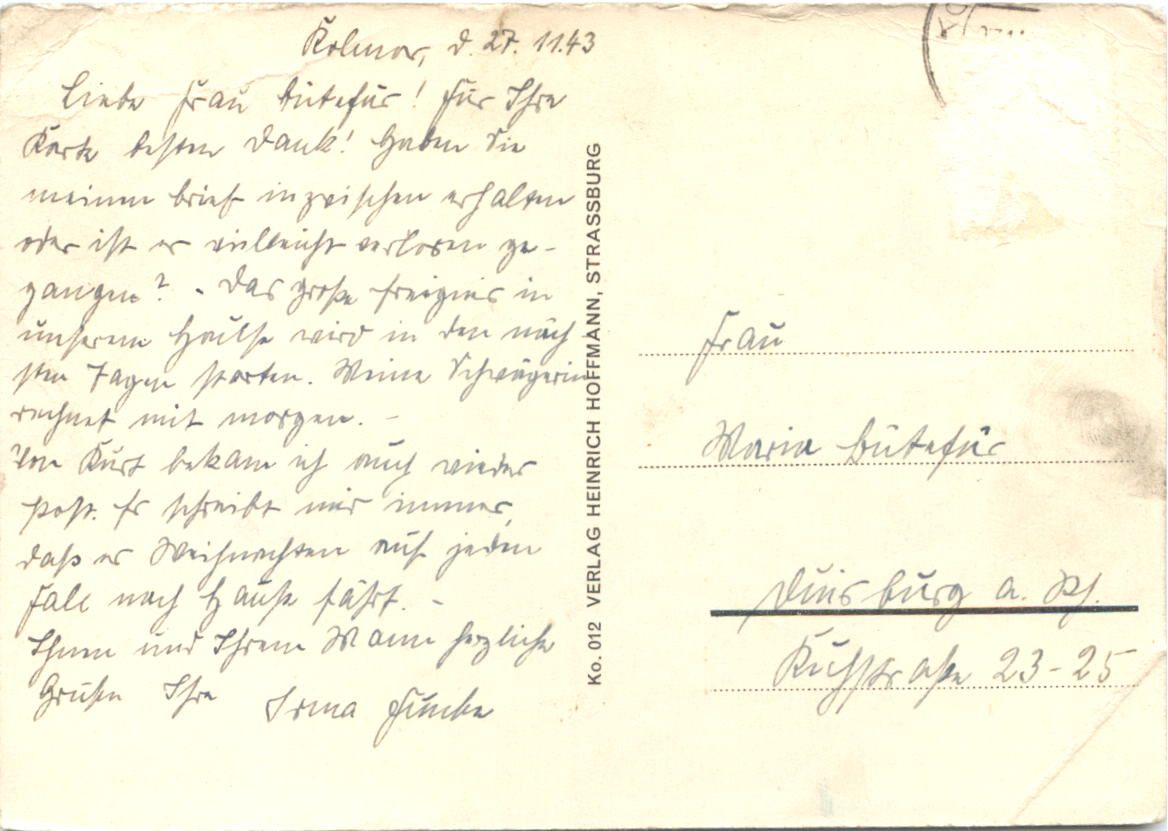 Kolmar, d. 27. 11.43
Liebe Frau Bütefür! Für Ihre
Karte besten Dank! Haben Sie
meinen Brief inzwischen erhalten
oder ist er vielleicht verloren ge-
gangen? - Das große Ereignis in
unserem Hause wird in den näch
sten Tagen starten. Meine Schwägerin
rechnet mit morgen. -
Von Kurt bekam ich auch wieder
Post. Er schreibt mir immer,
daß er Weihnachten auf jeden
Fall nach Hause fährt. -
Ihnen und Ihrem Mann herzliche
Grüße Ihre Irma
Ko. 012 VERLAG HEINRICH HOFFMANN, STRASSBURG
Frau
Maria Bütefür
Duisburg a. Rh.
Kuhstraße 23-25